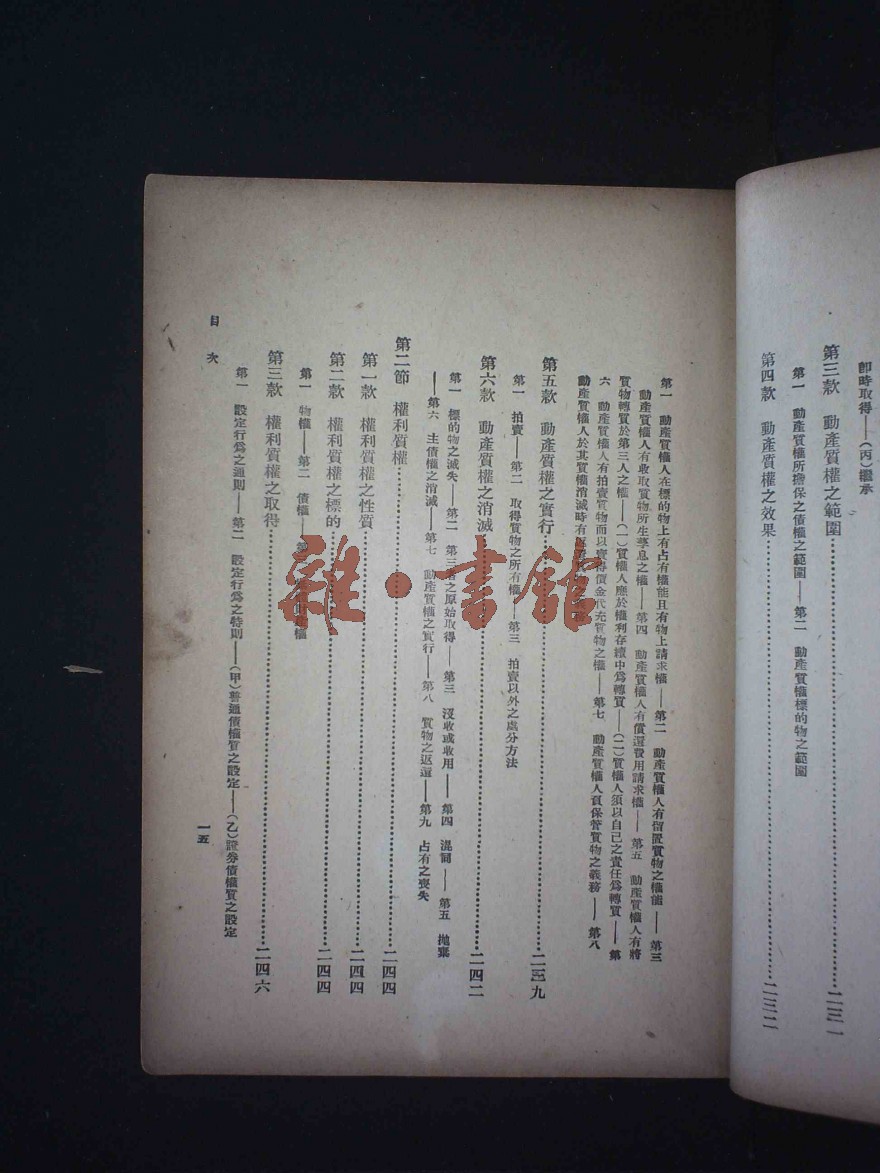 即時取得——(丙)繼承
第三款　動產質權之範圍……二三一
第一　動產質權所擔保之債權之範圍——第二　動產質權標的物之範圍
第四款　動產質權之效果……二三二
第一　動產質權人在標的物上有占有權能且有物上請求權——第二　動產質權人有留置質物之權能——第三
動產質權人有收取質物所生孳息之權——第四　動產質權人有償還費用請求權——第五　動產質權人有將
質物轉質於第三人之權——(一)質權人應於權利存續中為轉質——(二)質權人須以自己之責任為轉質——第
六　動產質權人有拍賣質物而以賣得價金代充質物之權——第七　動產質權人負保管質物之義務——第八
動產質權人於其質權消滅時有
第五款　動產質權之實行……二三九
第一　拍賣——第二　取得質物之所有權——第三　拍賣以外之處分方法
第六款　動產質權之消滅……二四二
第一　標的物之滅失——第二　第三者之原始取得——第三　沒收或收用——第四　混同——第五　拋棄
——第六　主債權之消滅——第七　動產質權之實行——第八　質物之返還——第九　占有之喪失
第二節　權利質權……二四四
第一款　權利質權之性質……二四四
第二款　權利質權之標的……二四四
第一　物權——第二　債權——第三
第三款　權利質權之取得……二四六
第一　設定行為之通則——第二　設定行為之特則——(甲)普通債權質之設定——(乙)證券債權質之設定
目次
一五
雜·書館